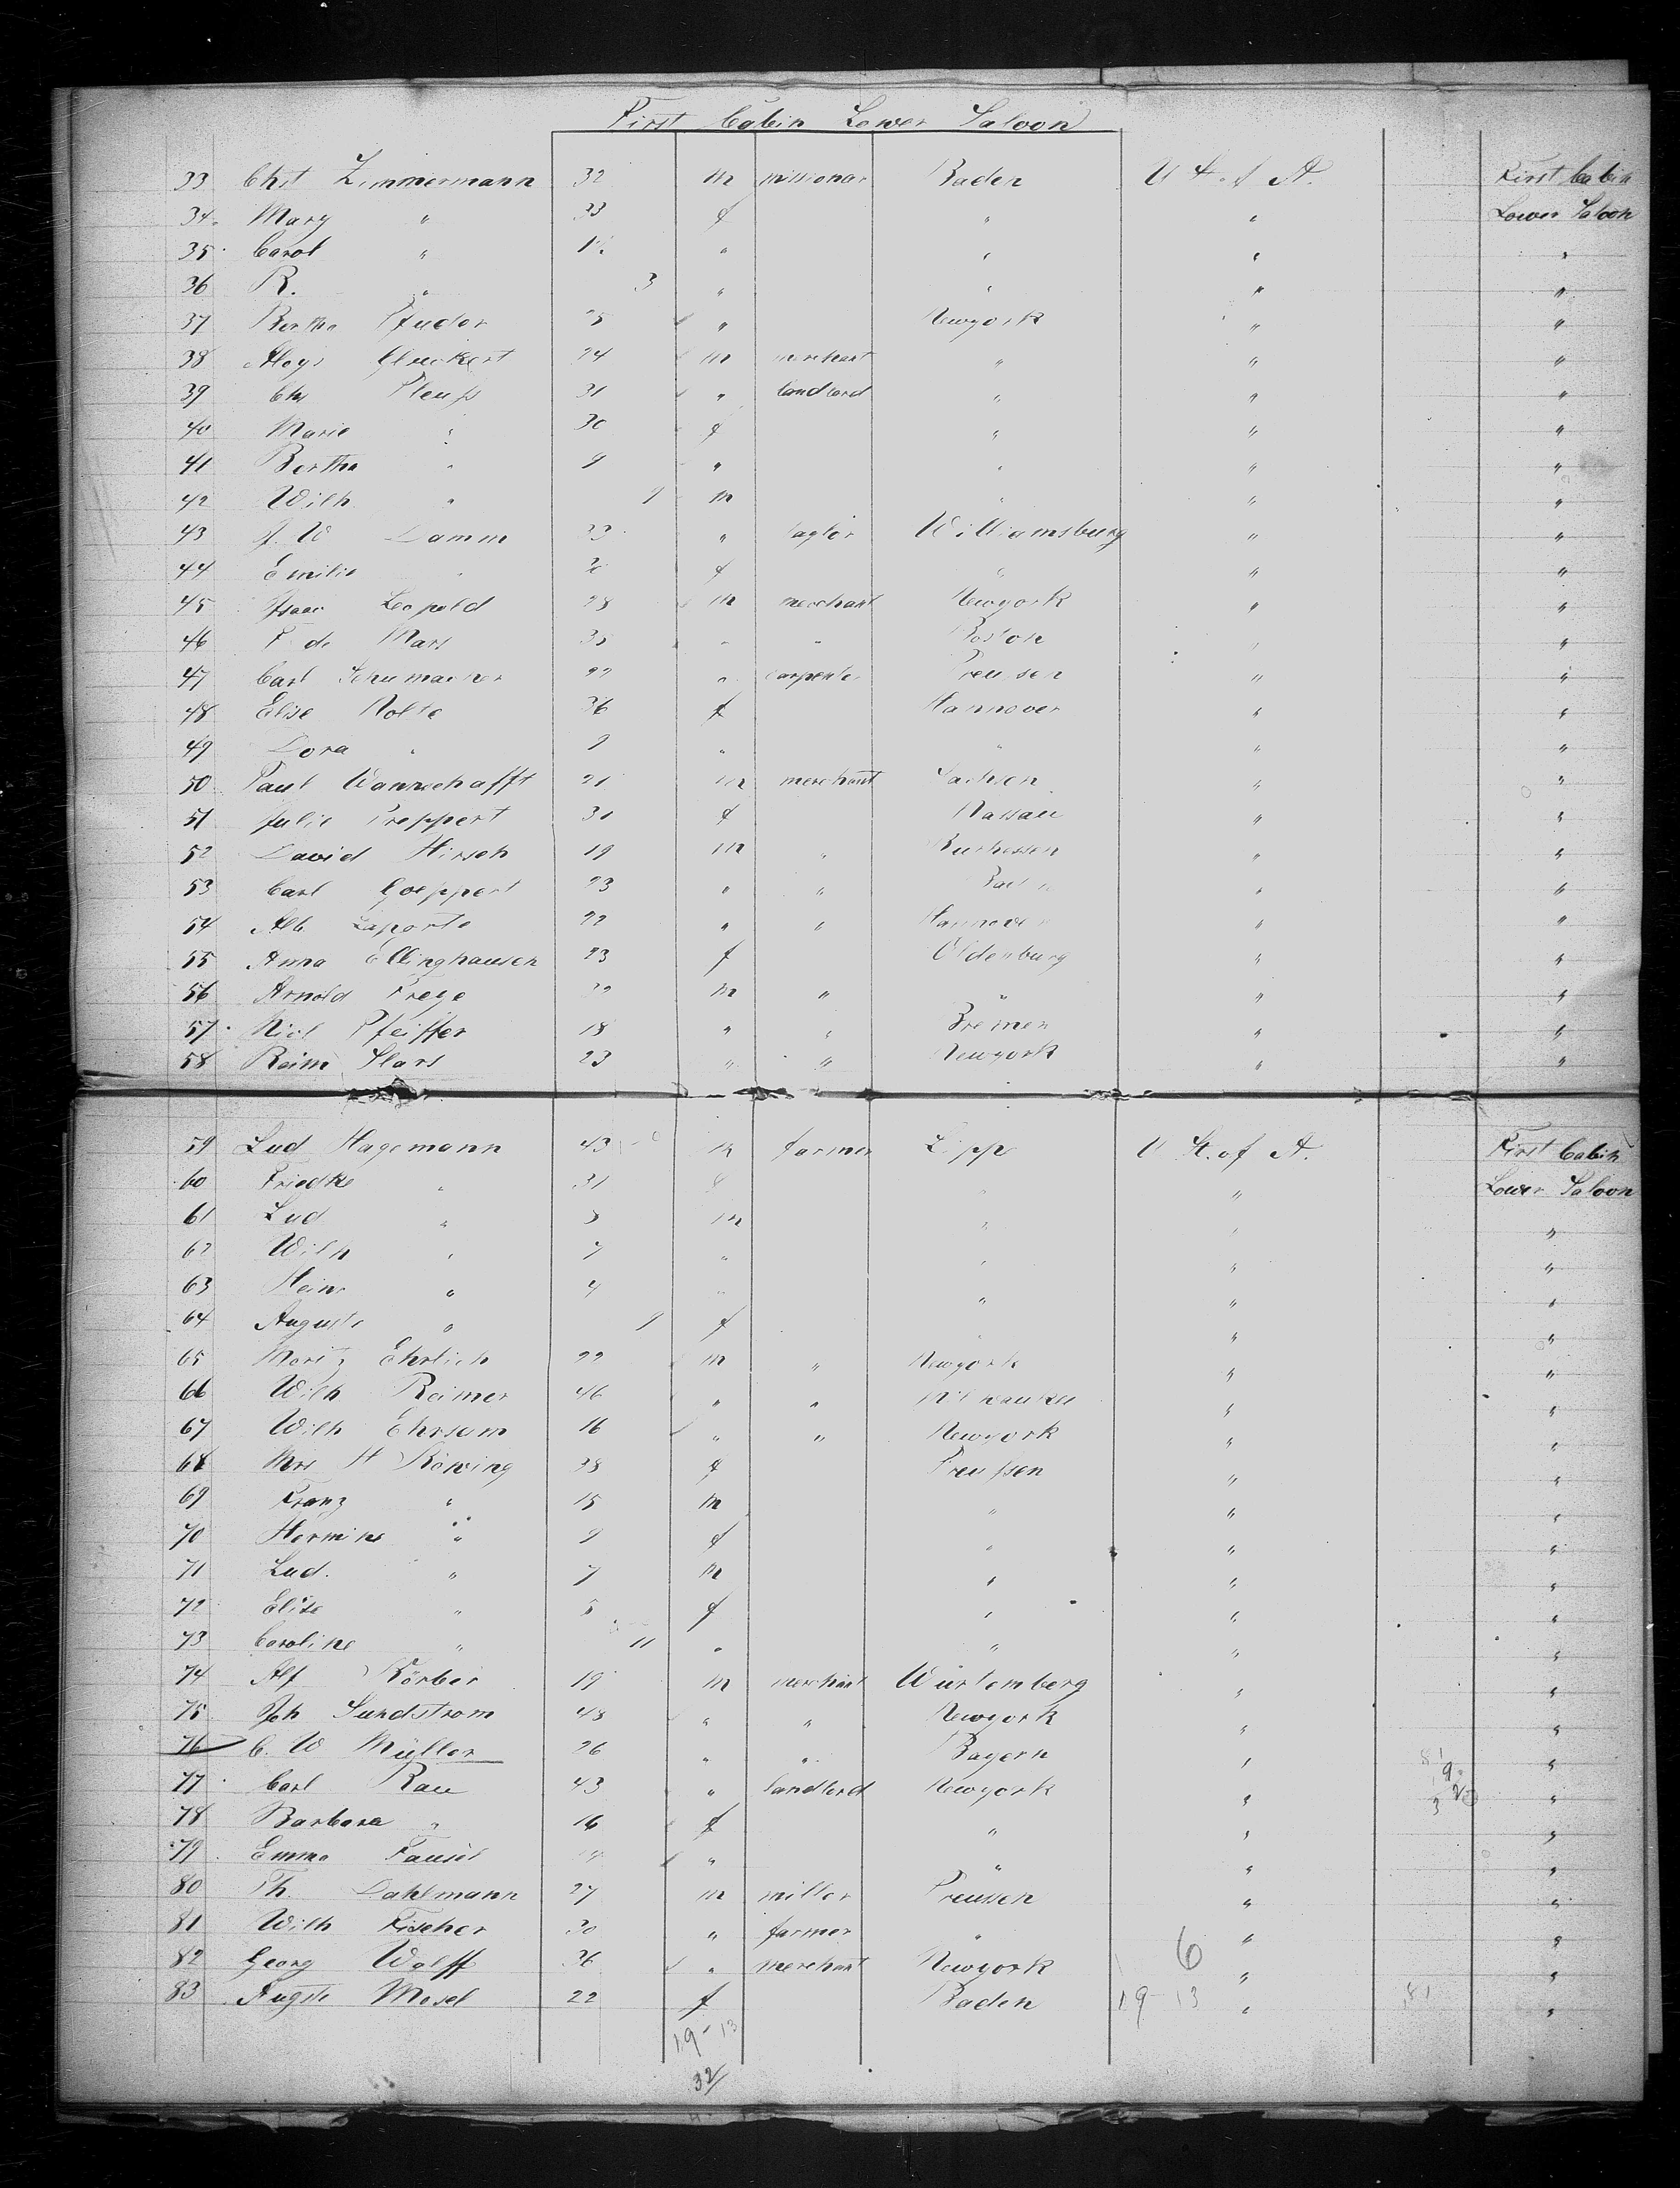 First Cabin Lower Saloon
33 Chst Zimmermann 32 m missionar Baden U St of A. First Cabin
34 Mary " 33 f " " Lower Saloon
35 Carol " " " " "
36 R. " 3 " " " "
37 Bertha Pfudor " Newyork " "
38 Aloys 24 m merchant " " "
39 Chs Pleuß 31 " landlord " " "
40 Marie " 30 f " " "
41 Bertha " 9 " " " "
42 Wilh " 9 m " " "
43 J. W Damm 33 " taylor Williamsburg " "
44 Emilie " f " " "
45 Isaac Leopold 28 m merchant Newyork " "
46 F de Mars 35 " " Boston " "
47 Carl Schumacher 22 " carpenter Preussen " "
48 Elise Nolte 36 f Hannover " "
49 Dora " 9 " " " "
50 Paul Wannschafft 21 m merchant Sachsen " "
51 Julie Treppert 31 f Nassau " "
52 David Hirsch 19 m " Kurhessen " "
53 Carl Goeppert 23 " " " "
54 Alb Laporte 22 " " Hannover " "
55 Anna Ellinghausen 23 f Oldenburg " "
56 Arnold Freye 22 m " " " "
57 Nicl Pfeiffer 18 " " Bremen " "
58 Reim Stars 23 " " Newyork " "
59 Lud Hagemann 43 m farmer Lipp U St. of A. First Cabin
60 Friedke " 31 f " " Lower Saloon
61 Lud " 5 m " " "
62 Wilh " 7 " " " "
63 Hein " 4 " " " "
64 Auguste " 9 f " " "
65 Moritz Ehrlich 22 m " Newyork " "
66 Wilh Reimer 46 " " Milwaukee " "
67 Wilh Ehrsam 16 " " Newyork " "
68 Mrs H Röwing 38 f Preußen " "
69 Franz " 15 m " " "
70 Hermine " 9 f " " "
71 Lud. " 7 m " " "
72 Elise " 5 f " " "
73 Caroline " 11 " " " "
74 Alf Körber 19 m merchant Würtemberg " "
75 Joh Sundstrom 48 " " Newyork " "
76 C. W Müller 26 " " Bayern " 81 "
77 Carl Rau 43 " landlord Newyork " "
78 Barbara " 16 f " " "
79 Emma Fausel " " " "
80 Th. Dahlmann 27 m miller Preussen " "
81 Wilh Fischer 30 " farmer " " "
82 Georg Wolff 36 " merchant Newyork 6 " "
83 Augste Mosel 22 f Baden 19-13 " 81 "
19-13
32